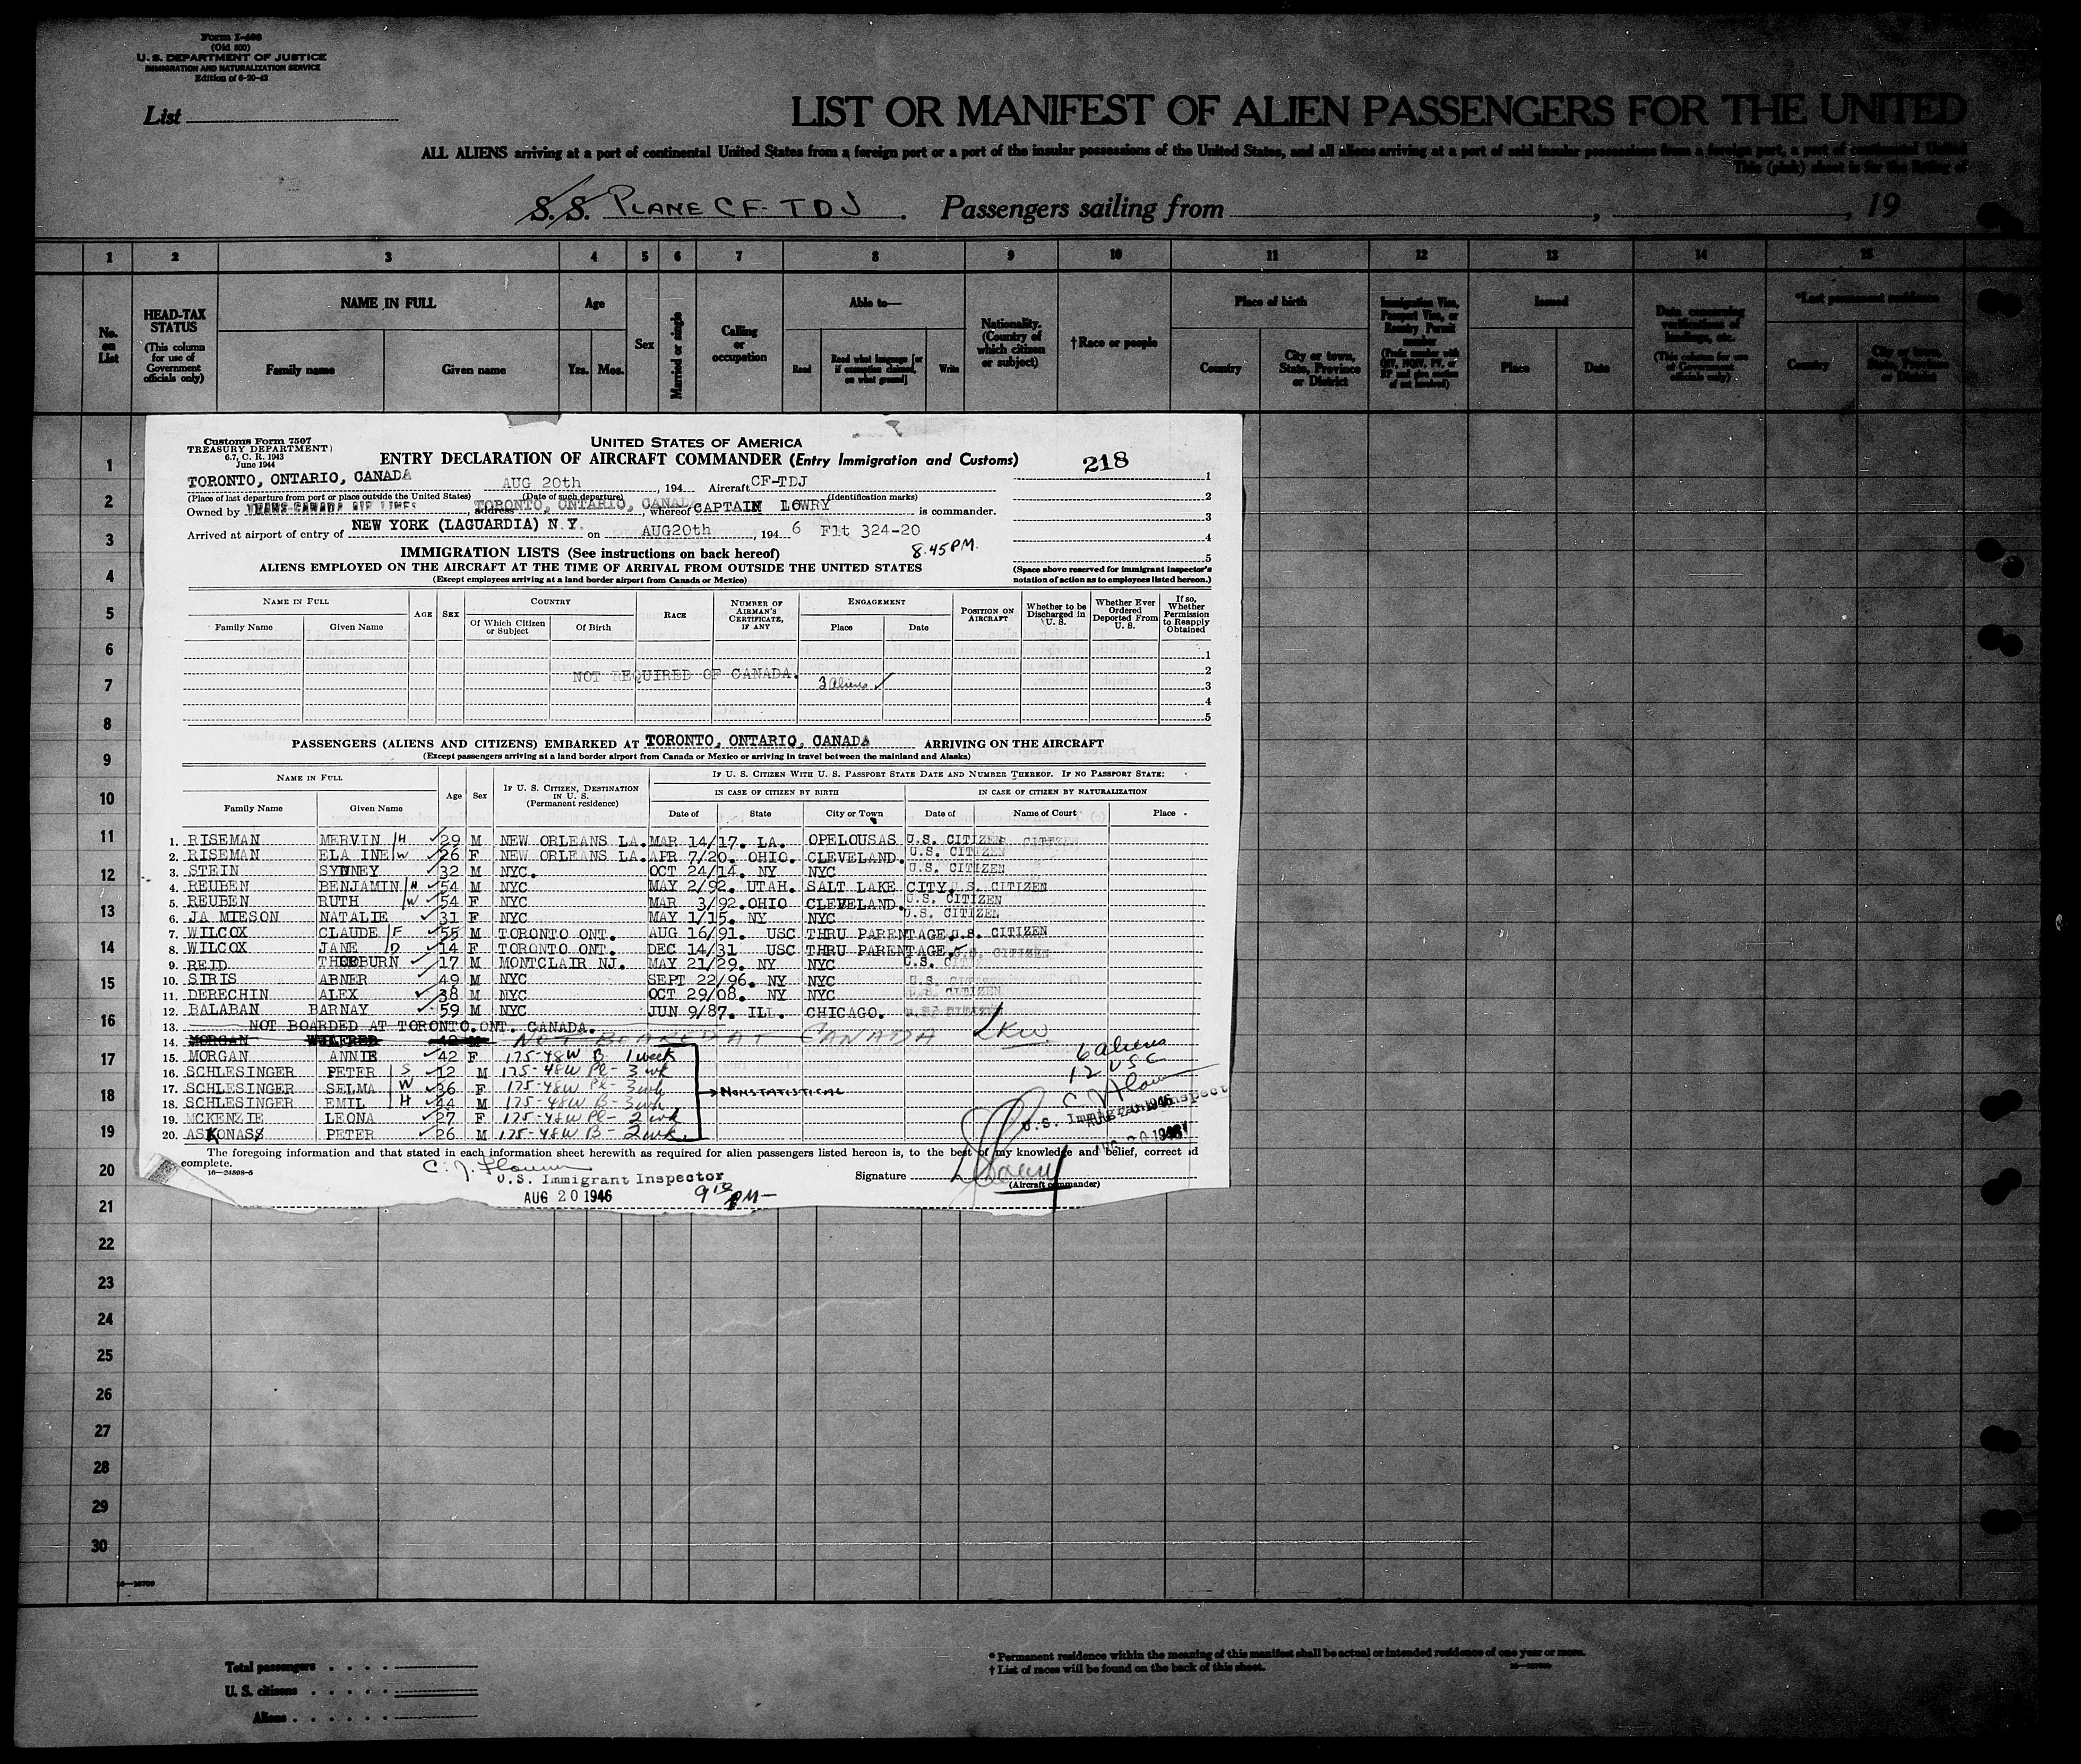 Form I-400
(Old 500)
U. S. DEPARTMENT OF JUSTICE
IMMIGRATION AND NATURALIZATION SERVICE
Edition of 6-20-43
List
LIST OR MANIFEST OF ALIEN PASSENGERS FOR THE UNITED
ALL ALIENS arriving at a port of continental United States from a foreign port or a port of the insular possessions of the United States, and all aliens arriving at a port of said insular possessions from a foreign port, a port of continental United
This (pink) sheet is for the listing of
S. S. PLANE CF-TDJ . Passengers sailing from , , 19
1 2 3 4 5 6 7 8 9 10 11 12 13 14 15
No. on List
HEAD-TAX STATUS (This column for use of Government officials only)
NAME IN FULL Family name Given name
Age Yrs. Mos.
Sex
Married or single
Calling or occupation
Able to— Read Read what language [or if exemption claimed, on what ground] Write
Nationality. (Country of which citizen or subject)
†Race or people
Place of birth Country City or town, State, Province or District
Immigration Visa, Passport Visa, or Reentry Permit number
Issued Place Date
Data concerning verifications of landings, etc. (This column for use of Government officials only)
*Last permanent residence Country City or town, State, Province or District
Customs Form 7507
TREASURY DEPARTMENT
6.7, C. R. 1943
June 1944
UNITED STATES OF AMERICA
ENTRY DECLARATION OF AIRCRAFT COMMANDER (Entry Immigration and Customs)
218
TORONTO, ONTARIO, CANADA AUG 20th , 194 Aircraft CF-TDJ
(Place of last departure from port or place outside the United States) (Date of such departure) (Identification marks)
Owned by TRANS-CANADA AIR LINES , address TORONTO, ONTARIO, CANADA whereof CAPTAIN LOWRY is commander.
Arrived at airport of entry of NEW YORK (LAGUARDIA) N.Y. on AUG20th , 194 6 Flt 324-20
8.45PM.
1
2
3
4
5
(Space above reserved for immigrant inspector's notation of action as to employees listed hereon.)
IMMIGRATION LISTS (See instructions on back hereof)
ALIENS EMPLOYED ON THE AIRCRAFT AT THE TIME OF ARRIVAL FROM OUTSIDE THE UNITED STATES
(Except employees arriving at a land border airport from Canada or Mexico)
NAME IN FULL Family Name Given Name AGE SEX COUNTRY Of Which Citizen or Subject Of Birth RACE NUMBER OF AIRMAN'S CERTIFICATE, IF ANY ENGAGEMENT Place Date POSITION ON AIRCRAFT Whether to be Discharged in U. S. Whether Ever Ordered Deported From U. S. If so, Whether Permission to Reapply Obtained
1
NOT REQUIRED OF CANADA. 2
3 aliens ✓ 3
4
5
PASSENGERS (ALIENS AND CITIZENS) EMBARKED AT TORONTO, ONTARIO, CANADA ARRIVING ON THE AIRCRAFT
(Except passengers arriving at a land border airport from Canada or Mexico or arriving in travel between the mainland and Alaska)
NAME IN FULL Family Name Given Name Age Sex IF U. S. CITIZEN, DESTINATION IN U. S. (Permanent residence)
IF U. S. CITIZEN WITH U. S. PASSPORT STATE DATE AND NUMBER THEREOF. IF NO PASSPORT STATE:
IN CASE OF CITIZEN BY BIRTH IN CASE OF CITIZEN BY NATURALIZATION
Date of State City or Town Date of Name of Court Place
1. RISEMAN MERVIN H ✓ 29 M NEW ORLEANS LA. MAR 14/17. LA. OPELOUSAS U.S. CITIZEN CITIZEN
2. RISEMAN ELAINE W ✓ 26 F NEW ORLEANS LA. APR 7/20. OHIO. CLEVELAND. U.S. CITIZEN
3. STEIN SYDNEY ✓ 32 M NYC. OCT 24/14. NY NYC U.S. CITIZEN
4. REUBEN BENJAMIN H ✓ 54 M NYC MAY 2/92. UTAH. SALT LAKE CITY. U.S. CITIZEN
5. REUBEN RUTH W ✓ 54 F NYC MAR 3/92. OHIO CLEVELAND. U.S. CITIZEN
6. JA MIESON NATALIE ✓ 31 F NYC MAY 1/15. NY NYC U.S. CITIZEN
7. WILCOX CLAUDE F ✓ 55 M TORONTO ONT. AUG 16/91. USC THRU PARENTAGE. U.S. CITIZEN
8. WILCOX JANE D ✓ 14 F TORONTO ONT. DEC 14/31 USC THRU PARENTAGE. U.S. CITIZEN
9. REID ✓ 17 M MONTCLAIR NJ. MAY 21/29. NY NYC U.S. CIT
10. SIRIS ABNER ✓ 49 M NYC SEPT 22/96. NY NYC U.S. CITIZEN
11. DERECHIN ALEX ✓ 38 M NYC OCT 29/08. NY NYC U.S. CITIZEN
12. BALABAN BARNAY ✓ 59 M NYC JUN 9/87. ILL. CHICAGO. U.S. CITIZEN
13. NOT BOARDED AT TORONTO.ONT. CANADA.
14. MORGAN WILFRED 42 M NOT BOARDED AT CANADA
15. MORGAN ANNIE ✓ 42 F 175-48W B 1 week
16. SCHLESINGER PETER S ✓ 12 M 175-48W Pl- 3 wk
17. SCHLESINGER SELMA W ✓ 36 F 175-48W Pl- 3 wk
18. SCHLESINGER EMIL H ✓ 44 M 175-48W B- 3 wk
19. MCKENZIE LEONA ✓ 27 F 175-48W Pl- 2 wk
20. ASKONASS PETER ✓ 26 M 175-48W B- 2 wk.
NONSTATISTICAL
6 aliens
12 USC
U.S. Immigrant Inspector
AUG 20 1946
AUG 20 1946
The foregoing information and that stated in each information sheet herewith as required for alien passengers listed hereon is, to the best of my knowledge and belief, correct and complete.
16—24598-5
U.S. Immigrant Inspector
AUG 20 1946
9 10 PM—
Signature
(Aircraft commander)
1
2
3
4
5
6
7
8
9
10
11
12
13
14
15
16
17
18
19
20
21
22
23
24
25
26
27
28
29
30
Total passengers
U. S. citizens
Aliens
* Permanent residence within the meaning of this manifest shall be actual or intended residence of one year or more.
† List of races will be found on the back of this sheet.